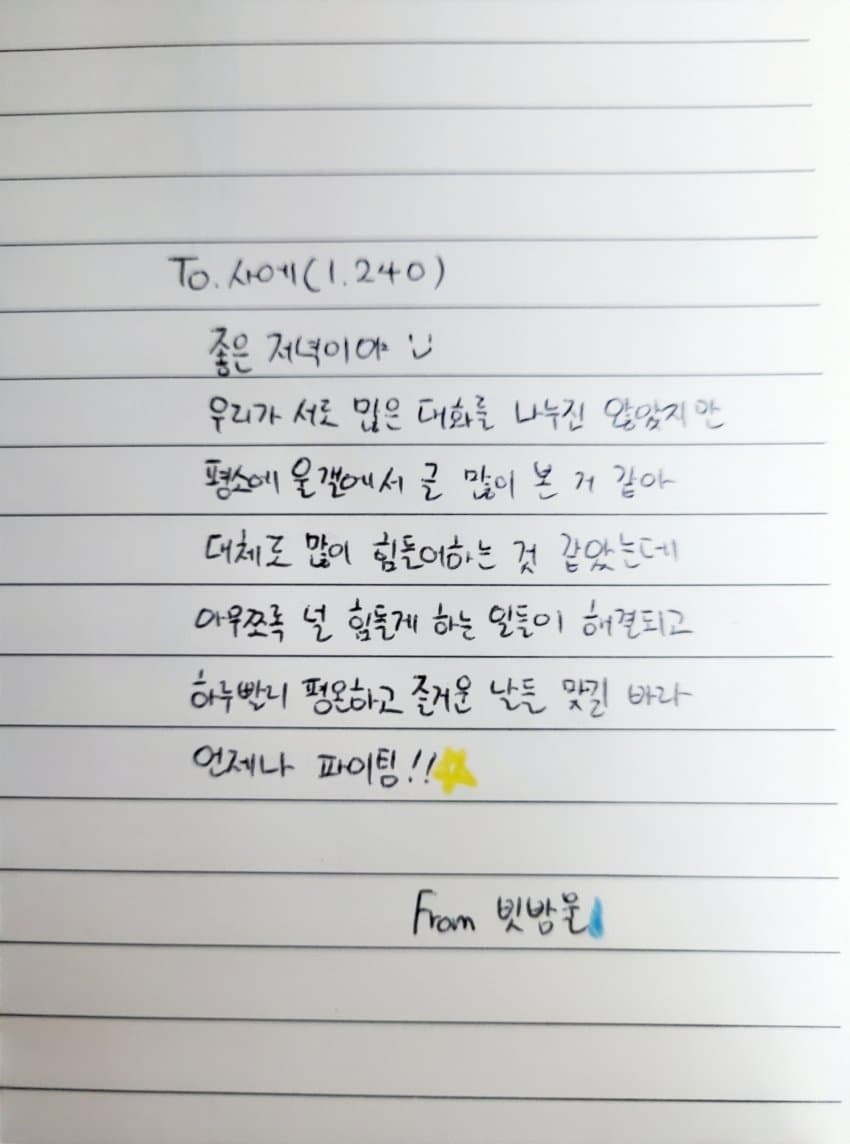 To. 사에(1.240)
좋은 저녁이야
우리가 서로 많은 대화를 나누진 않았지만
평소에 울갤에서 글 많이 본 거 같아
대체로 많이 힘들어하는 것 같았는데
아무쪼록 널 힘들게 하는 일들이 해결되고
하루빨리 평온하고 즐거운 날들 맞길 바라
언제나 파이팅!!
From 빗방울